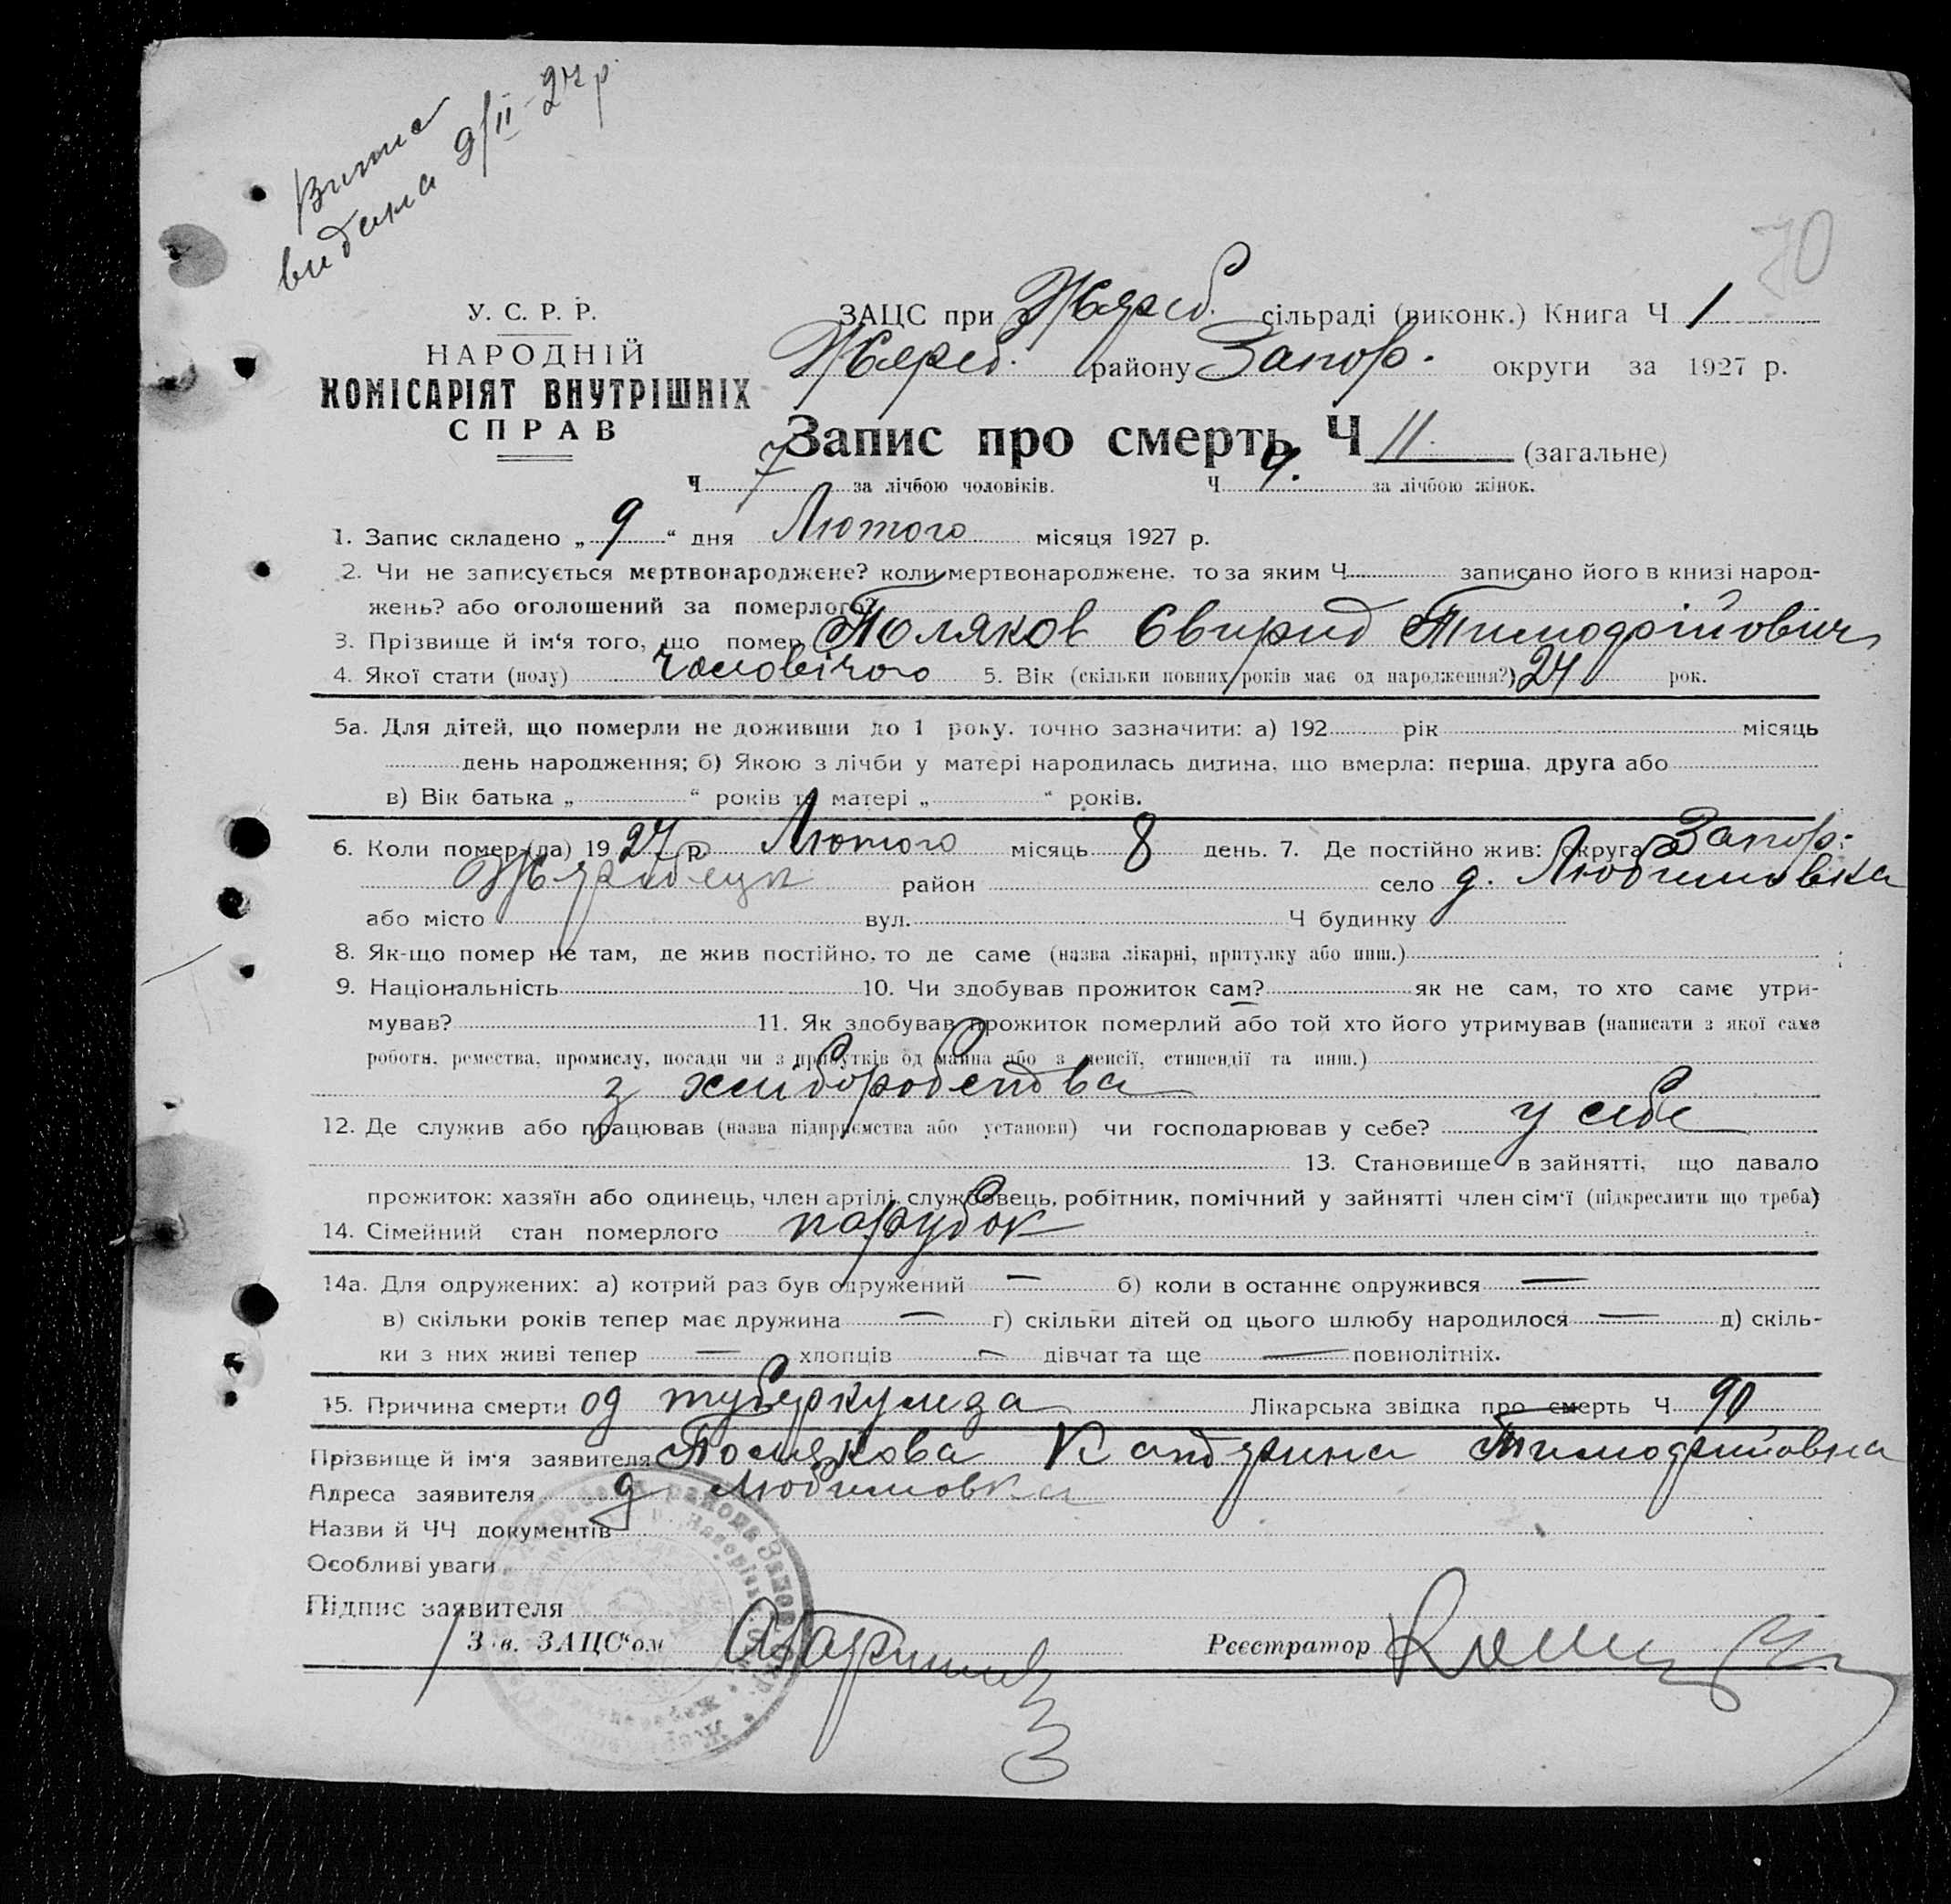 Випис
видана 9/II-27 р.
70
У. С. Р. Р.
НАРОДНІЙ
КОМІСАРІЯТ ВНУТРІШНІХ
СПРАВ
ЗАЦС при Жереб. сільраді (виконк.) Книга Ч 1
Жереб. району Запор. округи за 1927 р.
Запис про смерть Ч 11 (загальне)
Ч 7 за лічбою чоловіків. Ч 4. за лічбою жінок.
1. Запис складено „ 9 “ дня Лютого місяця 1927 р.
2. Чи не записується мертвонароджене? коли мертвонароджене, то за яким Ч записано його в книзі народ-
жень? або оголошений за померлого?
3. Прізвище й ім‘я того, що помер Поляков Свирид Тимофійович
4. Якої стати (полу) чоловічого 5. Вік (скільки повних років має од народження?) 24 рок.
5а. Для дітей, що померли не доживши до 1 року, точно зазначити: а) 192 рік місяць
день народження; б) Якою з лічби у матері народилась дитина, що вмерла: перша, друга або
в) Вік батька „ “ років та матері „ “ років.
6. Коли помер (ла) 19 27 р. Лютого місяць 8 день. 7. Де постійно жив: округа Запор.
район село д. Любимовка
або місто вул. Ч будинку
8. Як-що помер не там, де жив постійно, то де саме (назва лікарні, притулку або инш.)
9. Національність 10. Чи здобував прожиток сам? як не сам, то хто саме утри-
мував? 11. Як здобував прожиток померлий або той хто його утримував (написати з якої саме
роботи, ремества, промислу, посади чи з прибутків од майна або з пенсії, стипендії та инш.)
з хліборобства
12. Де служив або працював (назва підприємства або установи) чи господарював у себе? у себе
13. Становище в зайнятті, що давало
прожиток: хазяїн або одинець, член артілі, службовець, робітник, помічний у зайнятті член сім‘ї (підкреслити що треба)
14. Сімейний стан померлого парубок
14а. Для одружених: а) котрий раз був одружений — б) коли в останнє одружився —
в) скільки років тепер має дружина — г) скільки дітей од цього шлюбу народилося — д) скіль-
ки з них живі тепер — хлопців — дівчат та ще — повнолітніх.
15. Причина смерти од туберкулеза Лікарська звідка про смерть Ч 90
Прізвище й ім‘я заявителя Полякова Тимофійовна
Адреса заявителя д Любимовка
Назви й ЧЧ документів
Особливі уваги
Підпис заявителя
Зав. ЗАЦС‘ом Реєстратор